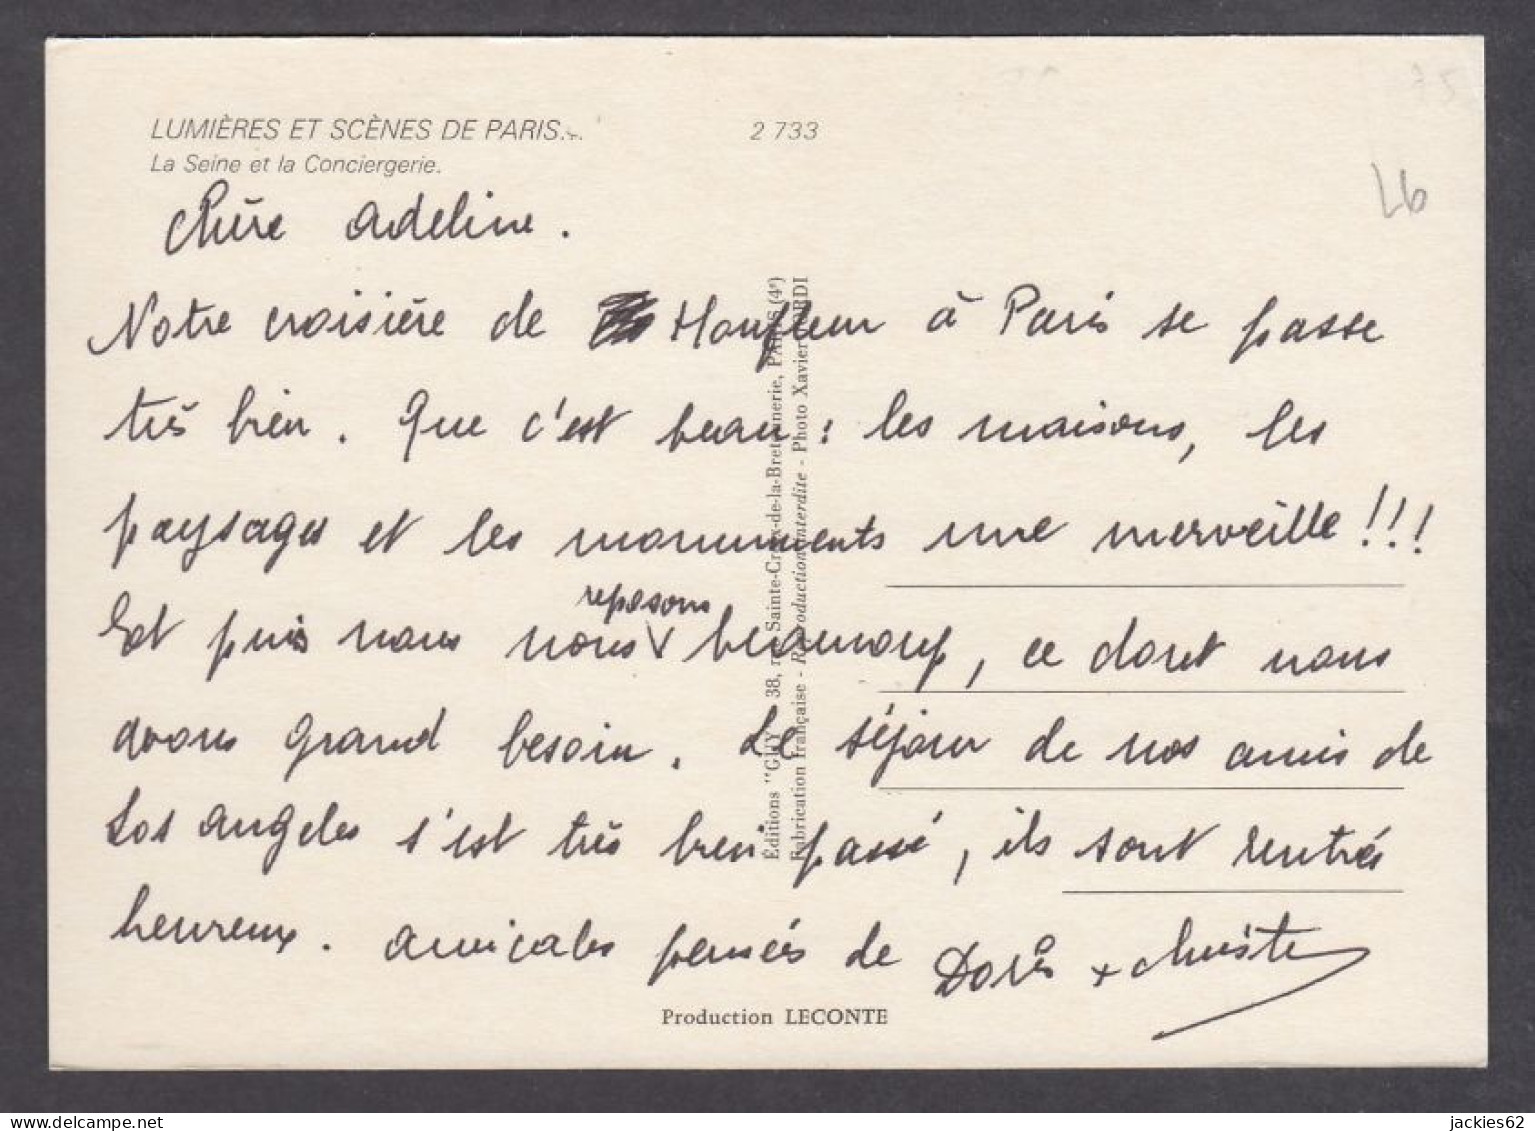 LUMIÈRES ET SCÈNES DE PARIS...
2 733
La Seine et la Conciergerie.
75
Lb
Chère Adeline.
Notre croisière de Honfleur à Paris se passe
très bien. Que c'est beau : les maisons, les
paysages et les monuments une merveille !!!
Et puis nous nous reposons beaucoup, ce dont nous
avons grand besoin. Le séjour de nos amis de
Los Angeles s'est très bien passé, ils sont rentrés
heureux. Amicales pensées de Doris + Christe
Éditions "GUY" - 38, rue Sainte-Croix-de-la-Bretonnerie, PARIS (4e)
Fabrication française - Reproduction interdite - Photo Xavier
Production LECONTE
delcampe.net
jackies62